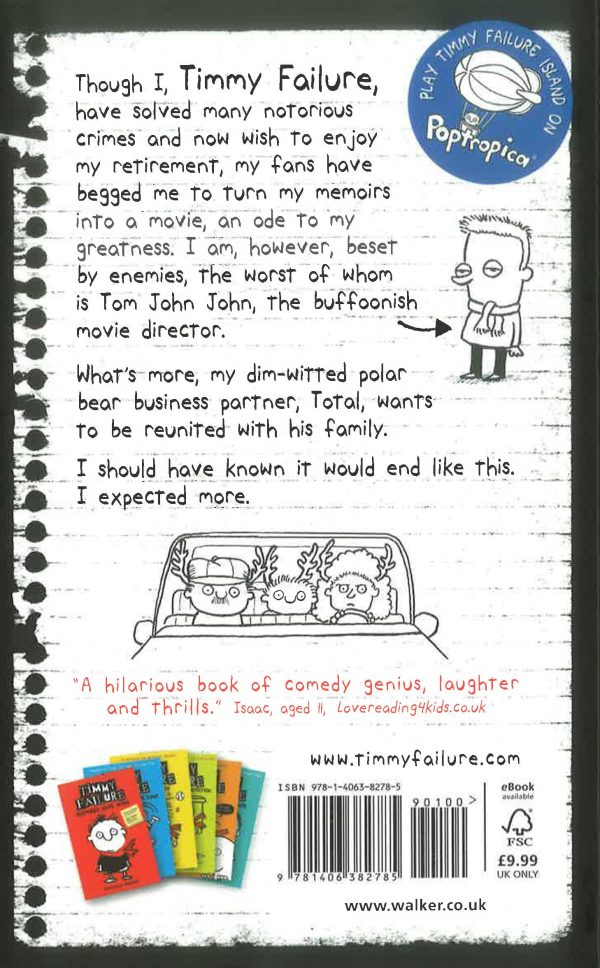 PLAY TIMMY FAILURE ISLAND ON
Poptropica®
Though I, Timmy Failure,
have solved many notorious
crimes and now wish to enjoy
my retirement, my fans have
begged me to turn my memoirs
into a movie, an ode to my
greatness. I am, however, beset
by enemies, the worst of whom
is Tom John John, the buffoonish
movie director.
What's more, my dim-witted polar
bear business partner, Total, wants
to be reunited with his family.
I should have known it would end like this.
I expected more.
"A hilarious book of comedy genius, laughter
and thrills." Isaac, aged 11, Lovereading4kids.co.uk
www.timmyfailure.com
TIMMY
FAILURE
ISBN 978-1-4063-8278-5
90100>
9 781406 382785
eBook
available
FSC
£9.99
UK ONLY
www.walker.co.uk